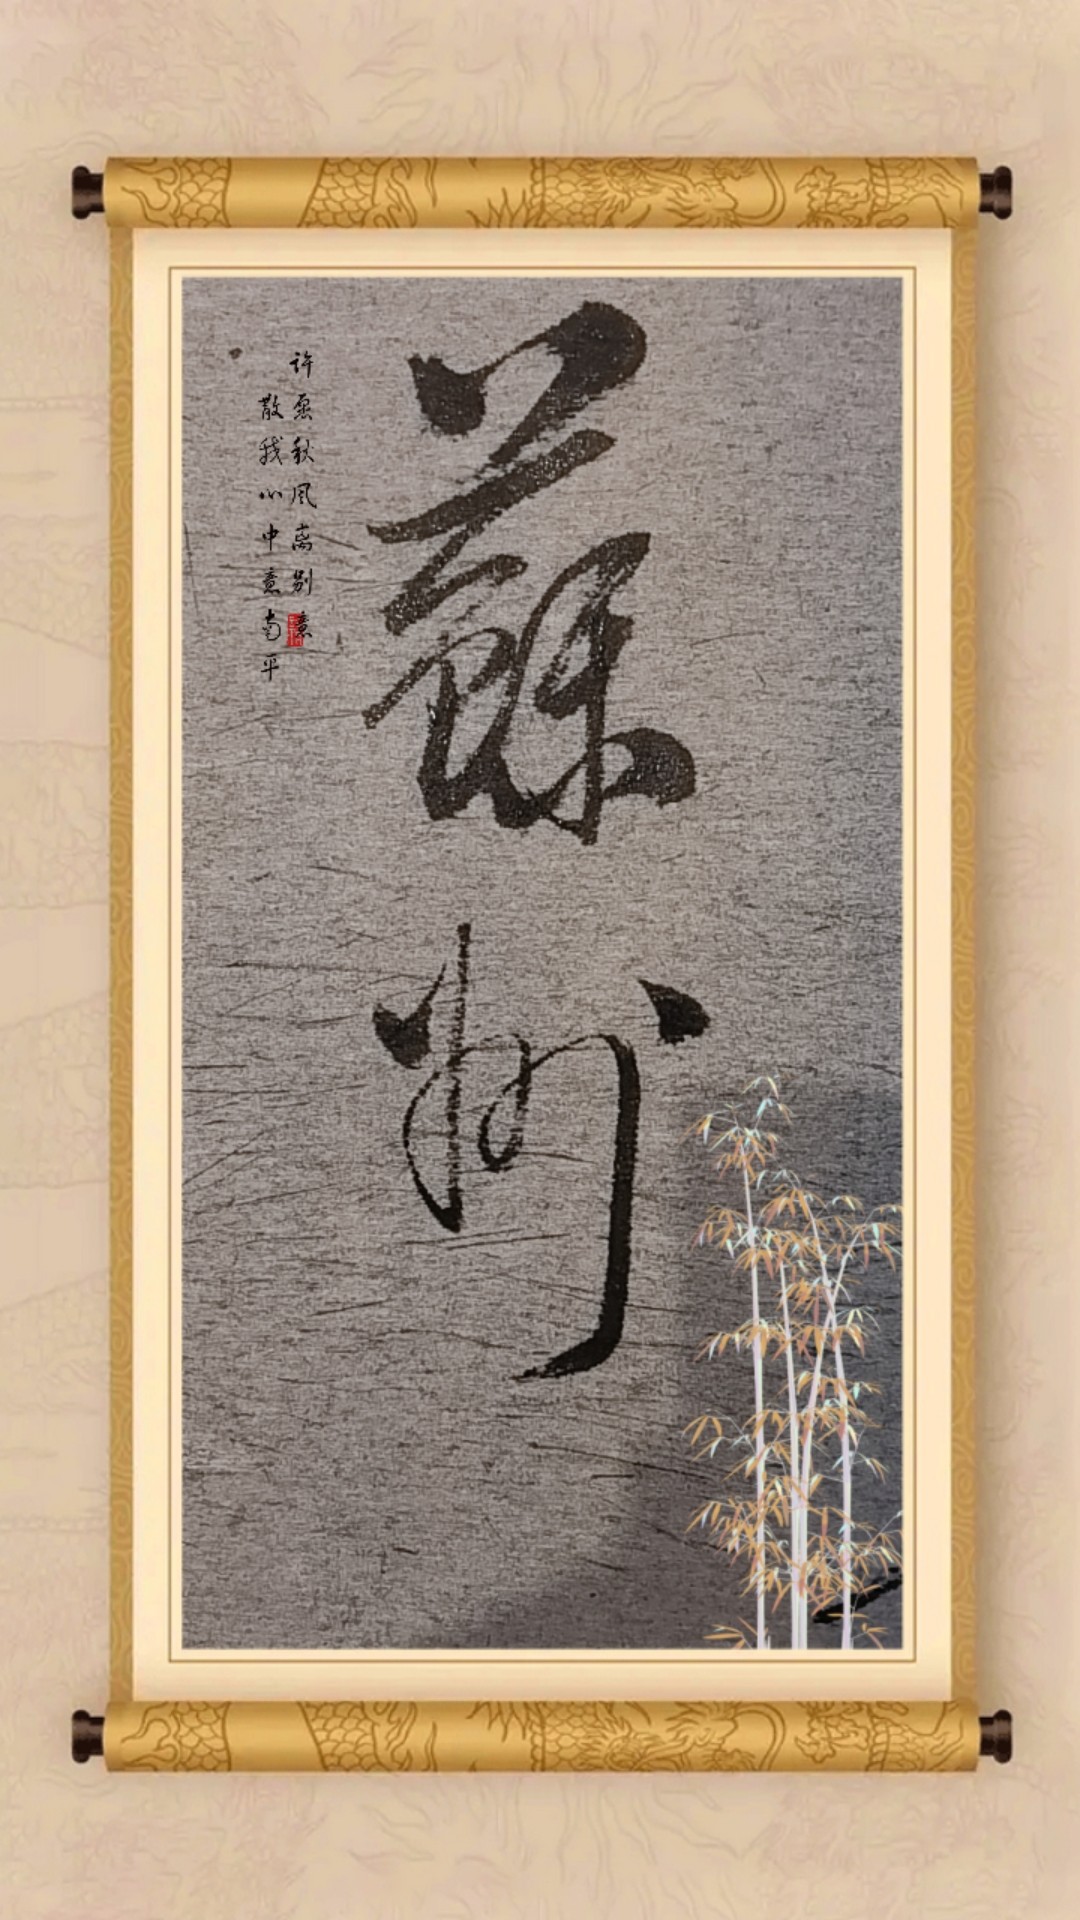 蘇州
许愿秋风离别意
散我心中意南平